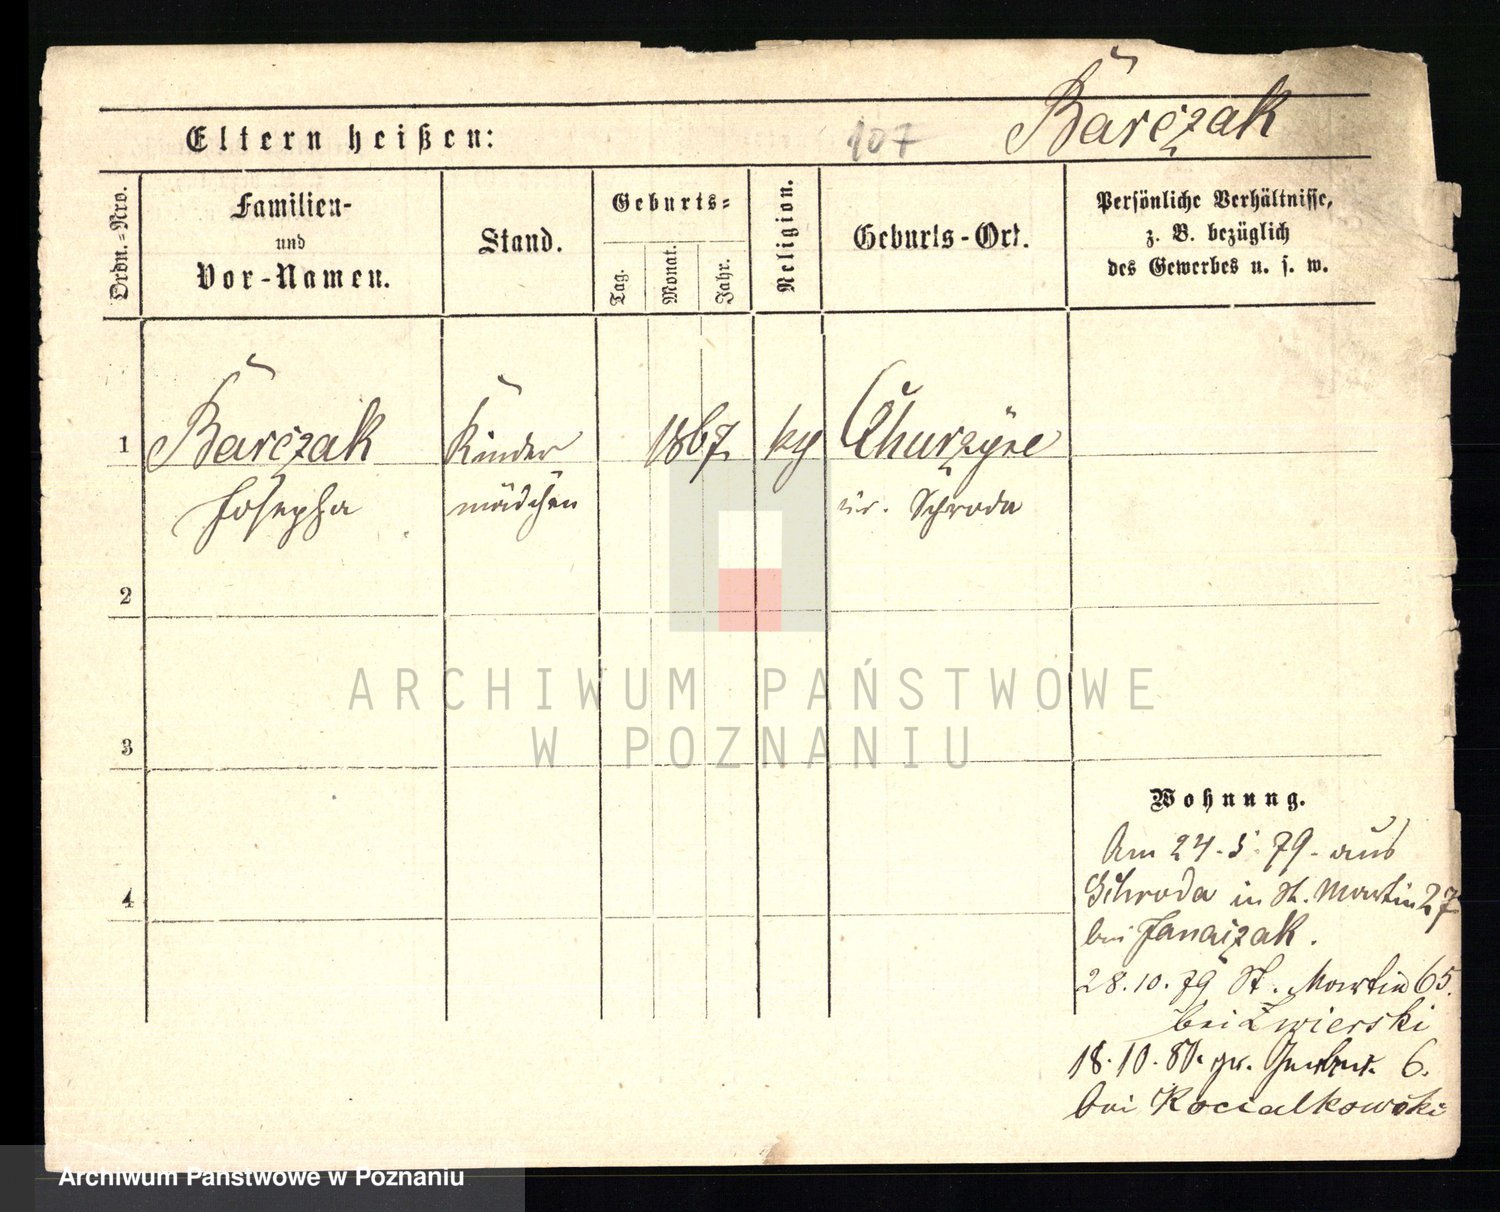 Barczak
107
Eltern heißen:
Ordn.-Nro.
Familien-
und
Vor-Namen.
Stand.
Geburts-
Tag.
Monat.
Jahr.
Religion.
Geburts-Ort.
Persönliche Verhältnisse,
z. B. bezüglich
des Gewerbes u. s. w.
1 Barczak Kinder 1867
Josepha mädchen Schroda
2
3
4
Wohnung.
Am 24.5.79. aus
Schroda in St. Martin 27
bei Janaczak.
28.10.79 St. Martin 65.
bei Zwierski
18.10.80. gr. Gerber. 6.
bei Kocialkowski
ARCHIWUM PAŃSTWOWE
W POZNANIU
Archiwum Państwowe w Poznaniu